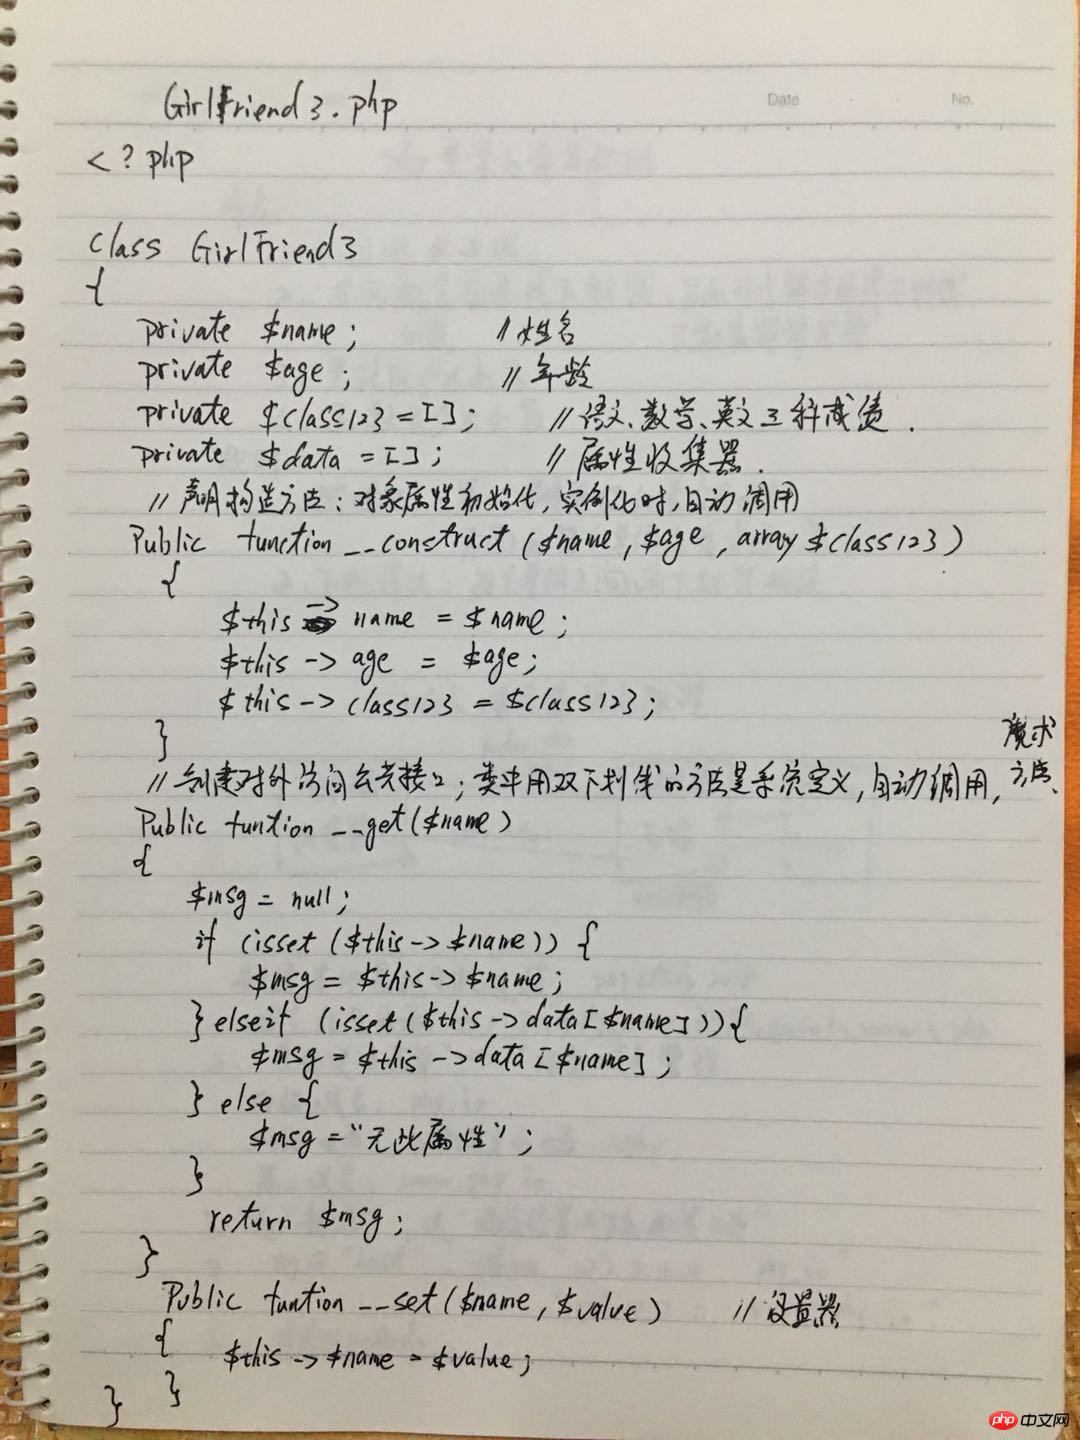 Date No.
GirlFriend3.php
<?php
class GirlFriend3
{
private $name; //姓名
private $age; //年龄
private $class123=[]; //语文、数学、英文三科成绩.
private $data=[]; //属性收集器.
//声明构造方法:对象属性初始化,实例化时,自动调用
Public function __construct ($name, $age, array $class123)
{
$this -> name = $name;
$this -> age = $age;
$this -> class123 = $class123;
}
//创建对外访问公共接口;类中用双下划线的方法是系统定义,自动调用,魔术方法、
Public funtion __get($name)
{
$msg = null;
if (isset ($this->$name)) {
$msg = $this->$name;
} elseif (isset($this->data[$name])){
$msg = $this->data[$name];
} else {
$msg="无此属性";
}
return $msg;
}
Public funtion __set($name, $value) //设置器
{
$this->$name = $value;
}
}
php 中文网